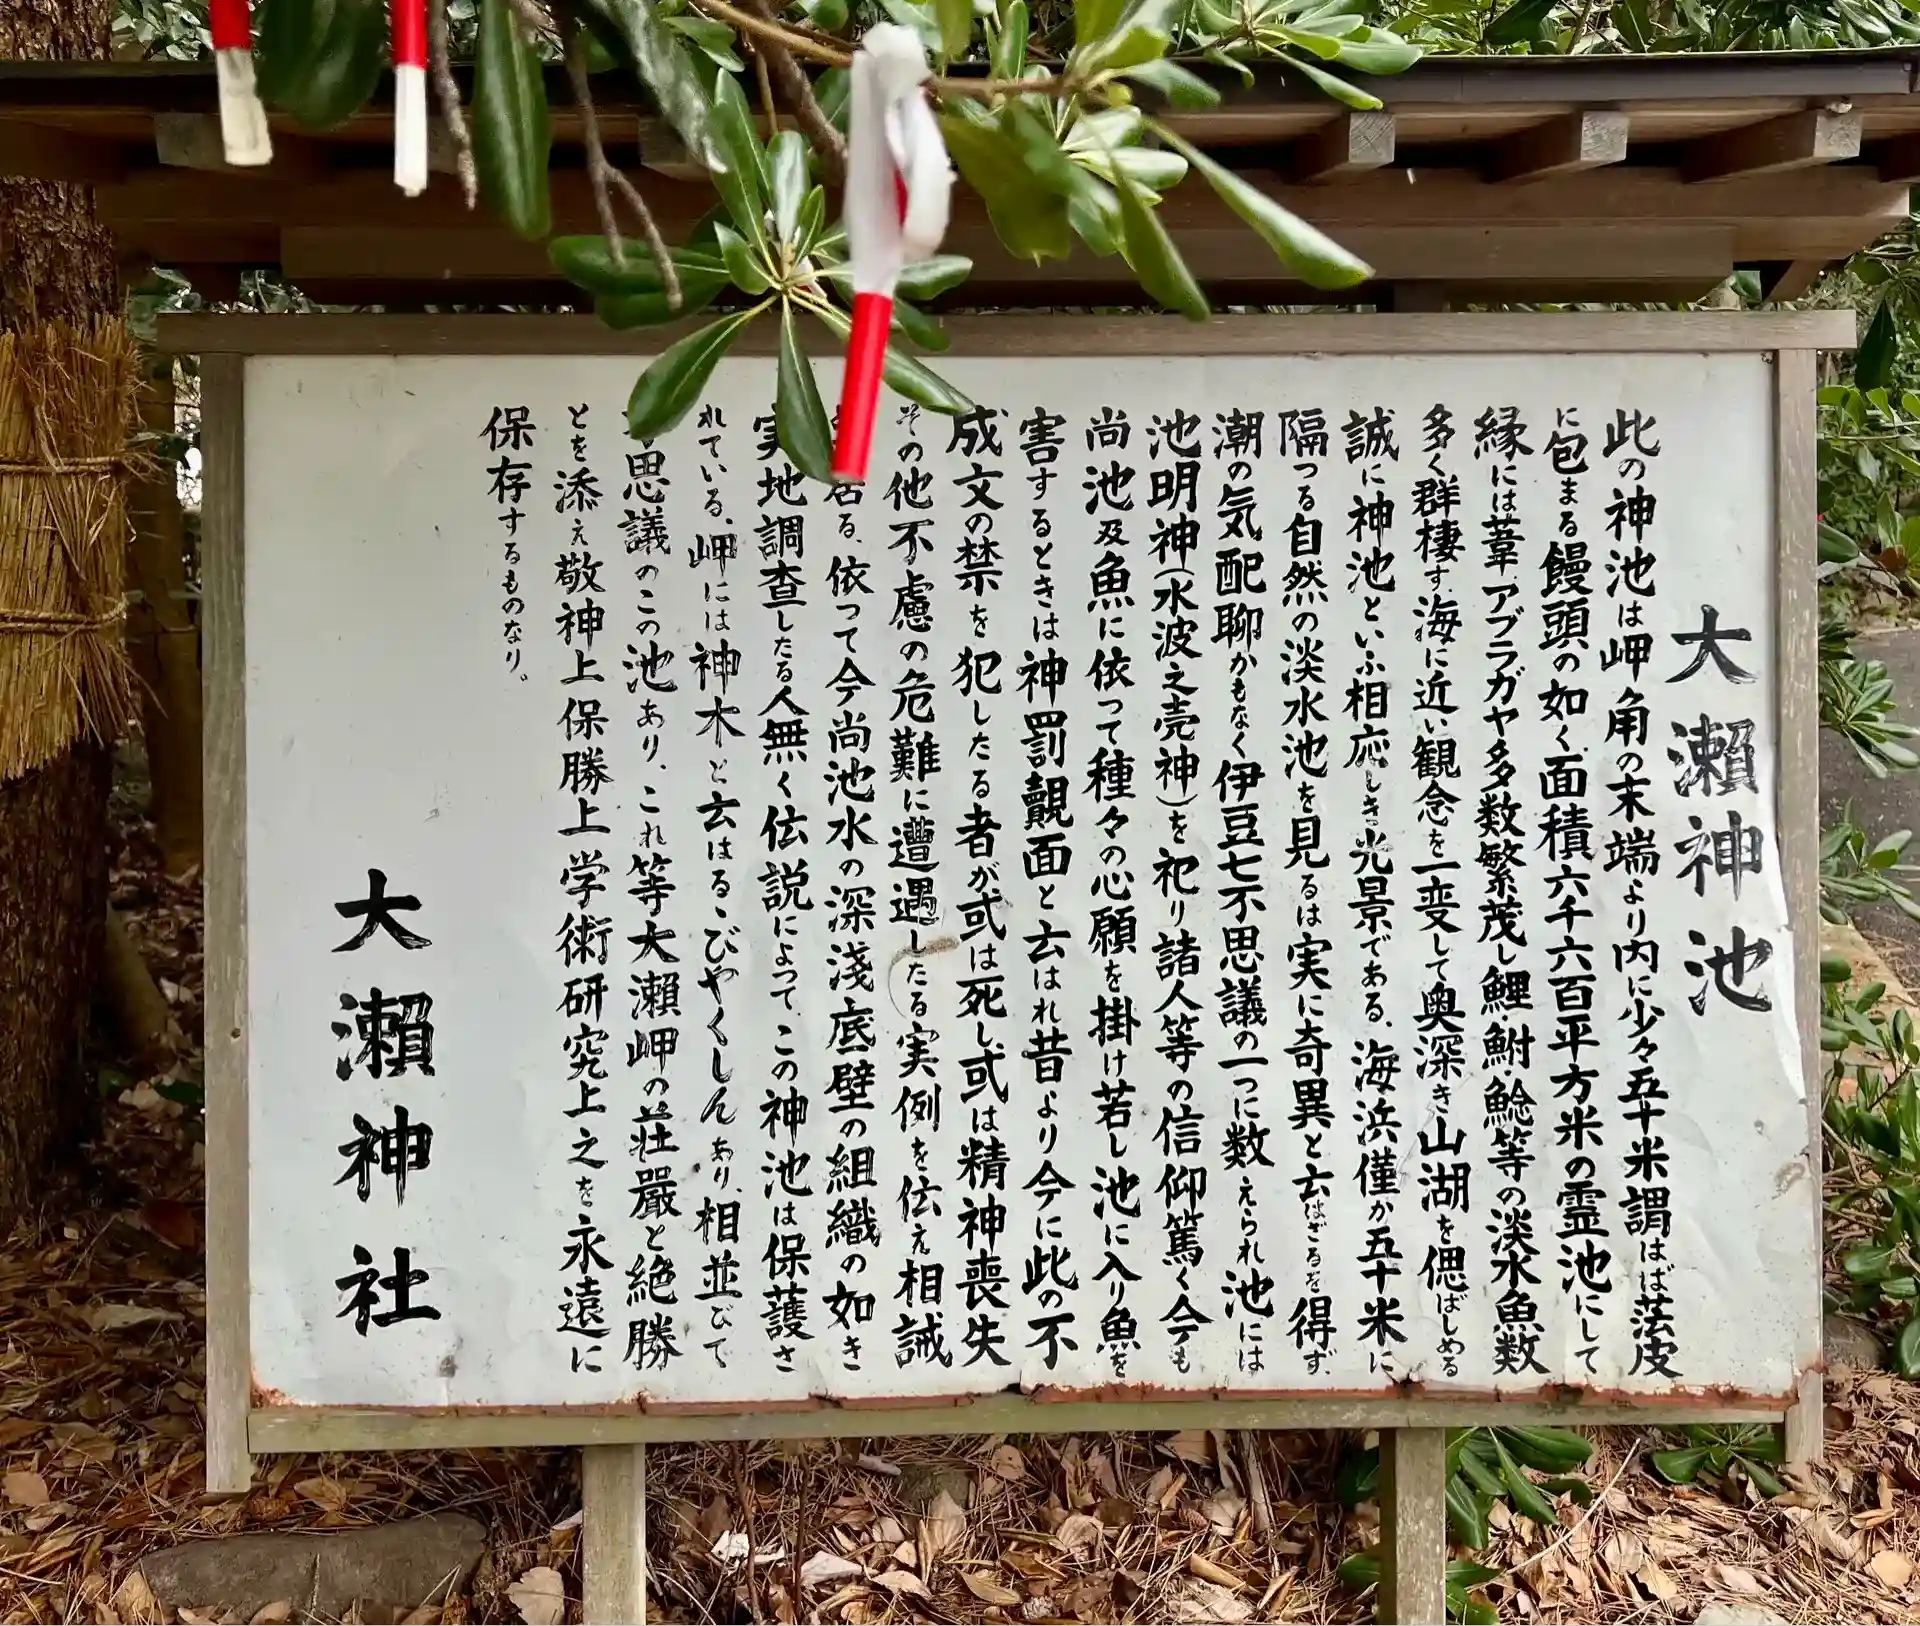 大瀬神池
此の神池は岬角の末端より内に少々五十米謂はば莖皮
に包まる饅頭の如く面積六千六百平方米の霊池にして
縁には葦、アブラガヤ多数繁茂し鯉、鮒、鯰等の淡水魚数
多く群棲す、海に近い観念を一変して奥深き山湖を偲ばしめる
誠に神池といふ相応しき光景である、海浜僅か五十米に
隔つる自然の淡水池を見るは実に奇異と云はざるを得ず、
潮の気配聊かもなく伊豆七不思議の一つに数えられ池には
池明神(水波之売神)を祀り諸人等の信仰篤く今も
尚池及魚に依って種々の心願を掛け若し池に入り魚を
害するときは神罰覿面と云はれ昔より今に此の不
成文の禁を犯したる者が或は死し、或は精神喪失
その他不慮の危難に遭遇したる実例を伝え相誡
居る、依って今尚池水の深淺底壁の組織の如き
実地調査したる人無く伝説によって、この神池は保護さ
れている、岬には神木と云はる、びやくしんあり、相並びて
思議のこの池あり、これ等大瀬岬の荘嚴と絶勝
とを添え敬神上保勝上学術研究上之を永遠に
保存するものなり。
大瀬神社